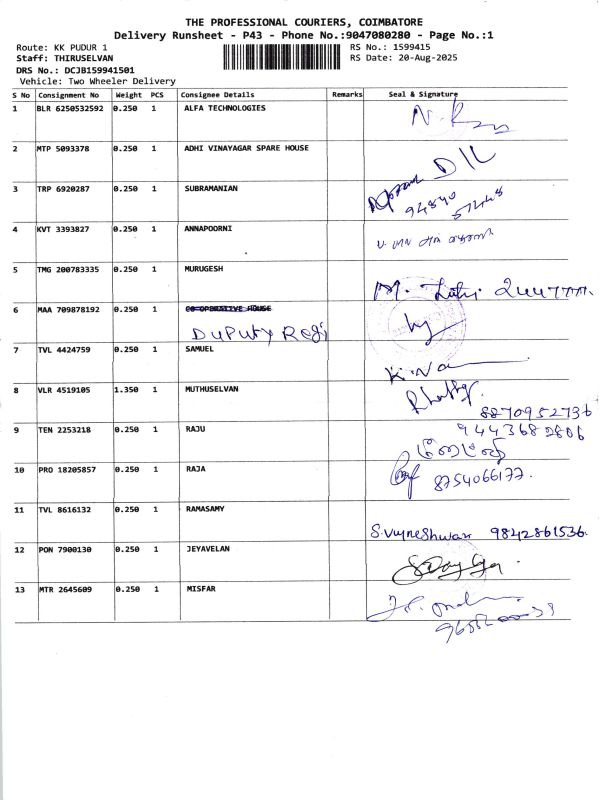 THE PROFESSIONAL COURIERS, COIMBATORE
Delivery Runsheet - P43 - Phone No.:9047080280 - Page No.:1
Route: KK PUDUR 1
RS No.: 1599415
Staff: THIRUSELVAN
RS Date: 20-Aug-2025
DRS No.: DCJB159941501
Vehicle: Two Wheeler Delivery
S No Consignment No Weight PCS Consignee Details Remarks Seal & Signature
1 BLR 6250532592 0.250 1 ALFA TECHNOLOGIES
2 MTP 5093378 0.250 1 ADHI VINAYAGAR SPARE HOUSE
3 TRP 6920287 0.250 1 SUBRAMANIAN
4 KVT 3393827 0.250 1 ANNAPOORNI
5 TMG 200783335 0.250 1 MURUGESH
6 MAA 709878192 0.250 1 CO-OPERATIVE HOUSE
DUPUTY Regi
7 TVL 4424759 0.250 1 SAMUEL
8 VLR 4519105 1.350 1 MUTHUSELVAN
8870952736
9 TEN 2253218 0.250 1 RAJU
9443682806
10 PRO 18205857 0.250 1 RAJA
8754066177.
11 TVL 8616132 0.250 1 RAMASAMY
9842861536.
12 PON 7900130 0.250 1 JEYAVELAN
13 MTR 2645609 0.250 1 MISFAR